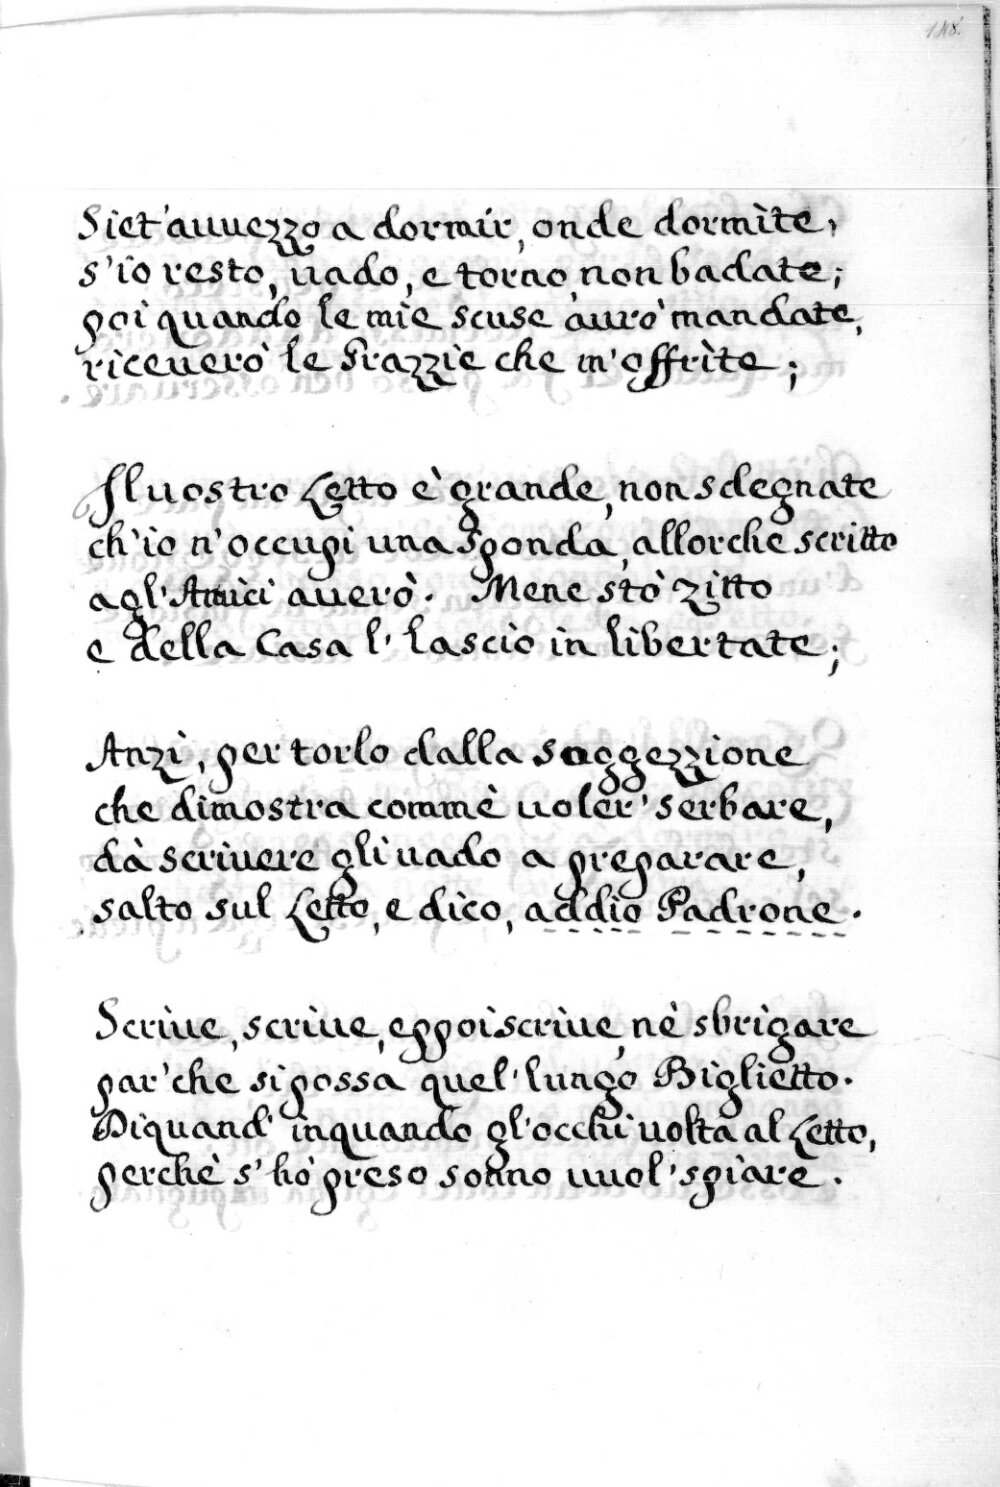 148.
Siet'auuezzo a dormir, onde dormìte,
s'io resto, uado, e torno, non badate;
poi quando le mie scuse aurò mandate,
riceuerò le Grazzie che m'offrìte;
Il uostro Letto è grande, non sdegnate
ch'io n'occupi una sponda, allorche scritto
agl'Amici auerò. Mene stò zitto
e della Casa l'lascio in libertate;
Anzi, per torlo dalla soggezzione
che dimostra commè uoler' serbare,
dà scriuere gli uado a preparare,
salto sul Letto, e dico, addio Padrone.
Scriue, scriue, eppoi scriue, nè sbrigare
par'che si possa quel'lungo Biglietto.
Di quand' inquando gl'occhi uolta al Letto,
perchè s'hò preso sonno uuol'spiare.